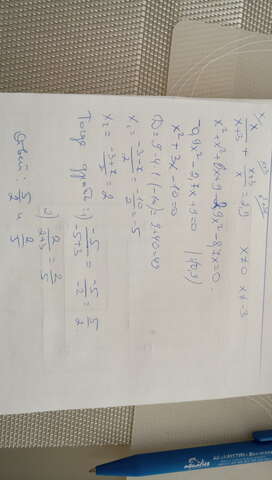 x/(x+3) + (x+3)/x = 2,9   x≠0   x≠-3
x² + x² + 6x + 9 - 2,9x² - 8,7x = 0
-0,9x² - 2,7x + 9 = 0
x² + 3x - 10 = 0
D = 9 - 4·1·(-10) = 9 + 40 = 49
x₁ = (-3-7)/2 = -10/2 = -5
x₂ = (-3+7)/2 = 2
Тогда дробь: 1) -5/(-5+3) = -5/-2 = 5/2
2) 2/(2+3) = 2/5
Ответ: 5/2 и 2/5